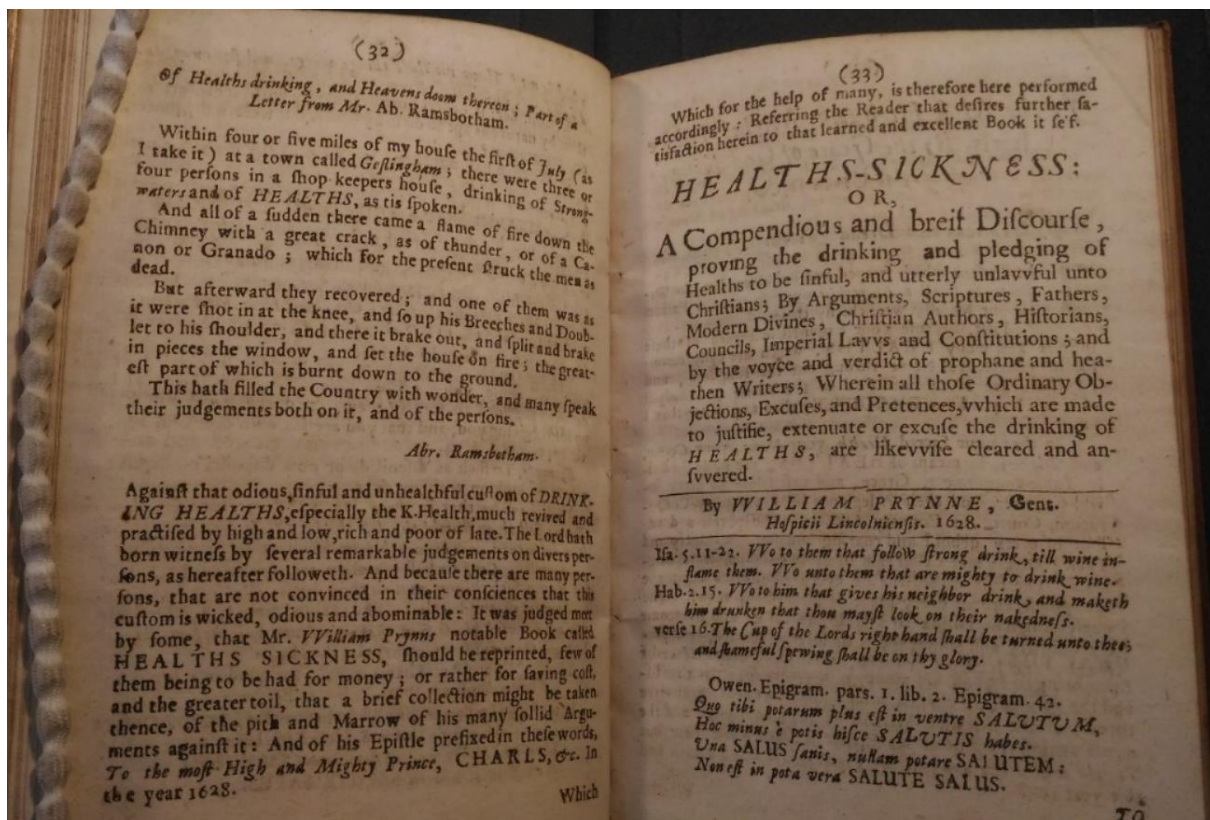 (32)
Of Healths drinking, and Heavens doom thereon; Part of a
Letter from Mr. Ab. Ramsbotham.
Within four or five miles of my houſe the firſt of July (as
I take it) at a town called Geſlingham; there were three or
four perſons in a ſhop keepers houſe, drinking of Strong-
waters and of HEALTHS, as tis ſpoken.
And all of a ſudden there came a flame of fire down the
Chimney with a great crack, as of thunder, or of a Ca-
non or Granado; which for the preſent ſtruck the men as
dead.
But afterward they recovered; and one of them was as
it were ſhot in at the knee, and ſo up his Breeches and Doub-
let to his ſhoulder, and there it brake out, and ſplit and brake
in pieces the window, and ſet the houſe on fire; the great-
eſt part of which is burnt down to the ground.
This hath filled the Country with wonder, and many ſpeak
their judgements both on it, and of the perſons.
Abr. Ramsbotham.
Againſt that odious, ſinful and unhealthful cuſtom of DRINK-
ING HEALTHS, eſpecially the K.Health, much revived and
practiſed by high and low, rich and poor of late. The Lord hath
born witneſs by ſeveral remarkable judgements on divers per-
ſons, as hereafter followeth. And becauſe there are many per-
ſons, that are not convinced in their conſciences that this
cuſtom is wicked, odious and abominable: It was judged meet
by ſome, that Mr. VVilliam Prynns notable Book called
HEALTHS SICKNESS, ſhould be reprinted, few of
them being to be had for money; or rather for ſaving coſt,
and the greater toil, that a brief collection might be taken
thence, of the pith and Marrow of his many ſollid Argu-
ments againſt it: And of his Epiſtle prefixed in theſe words,
To the moſt High and Mighty Prince, CHARLS, &c. In
the year 1628.
Which
(33)
Which for the help of many, is therefore here performed
accordingly: Referring the Reader that deſires further ſa-
tisfaction herein to that learned and excellent Book it ſe'f.
HEALTHS-SICKNESS:
OR,
A Compendious and breif Diſcourſe,
proving the drinking and pledging of
Healths to be ſinful, and utterly unlavvful unto
Chriſtians; By Arguments, Scriptures, Fathers,
Modern Divines, Chriſtian Authors, Hiſtorians,
Councils, Imperial Lavvs and Conſtitutions; and
by the voyce and verdict of prophane and hea-
then Writers; Wherein all thoſe Ordinary Ob-
jections, Excuſes, and Pretences, vvhich are made
to juſtifie, extenuate or excuſe the drinking of
HEALTHS, are likevviſe cleared and an-
ſvvered.
By VVILLIAM PRYNNE, Gent.
Hoſpicii Lincolnienſis. 1628.
Iſa. 5.11-22. VVo to them that follow ſtrong drink, till wine in-
flame them. VVo unto them that are mighty to drink wine.
Hab.2.15. VVo to him that gives his neighbor drink, and maketh
him drunken that thou mayſt look on their nakedneſs.
verſe 16. The Cup of the Lords right hand ſhall be turned unto thee;
and ſhameful ſpewing ſhall be on thy glory.
Owen. Epigram. pars. 1. lib. 2. Epigram. 42.
Quo tibi potarum plus eſt in ventre SALUTUM,
Hoc minus è potis hiſce SALUTIS habes.
Una SALUS ſanis, nullam potare SALUTEM:
Non eſt in pota vera SALUTE SALUS.